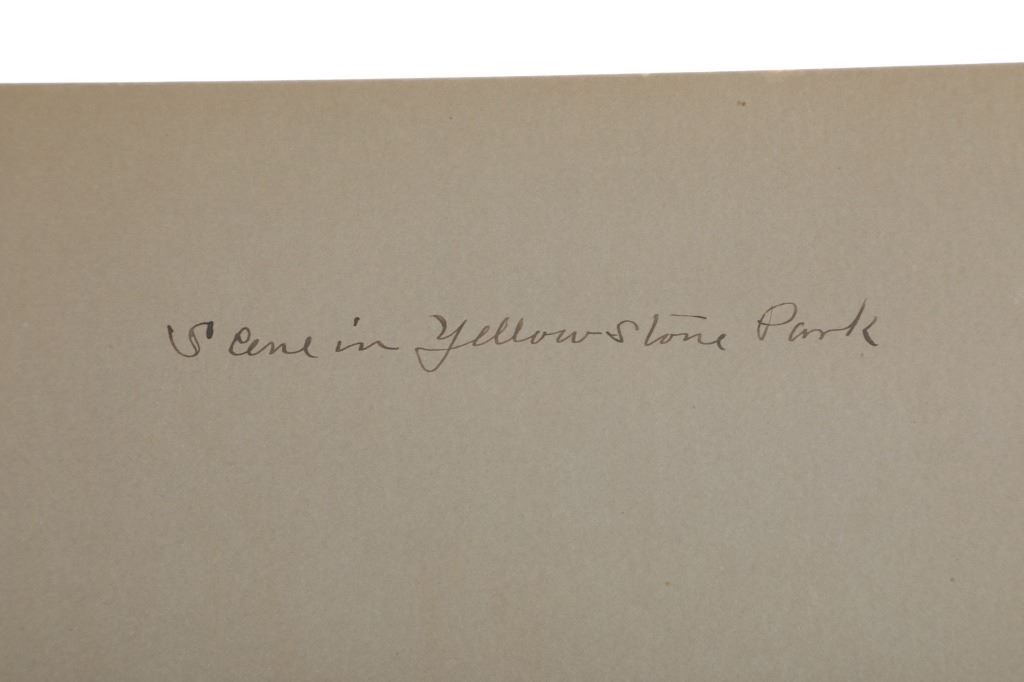 Scene in Yellowstone Park